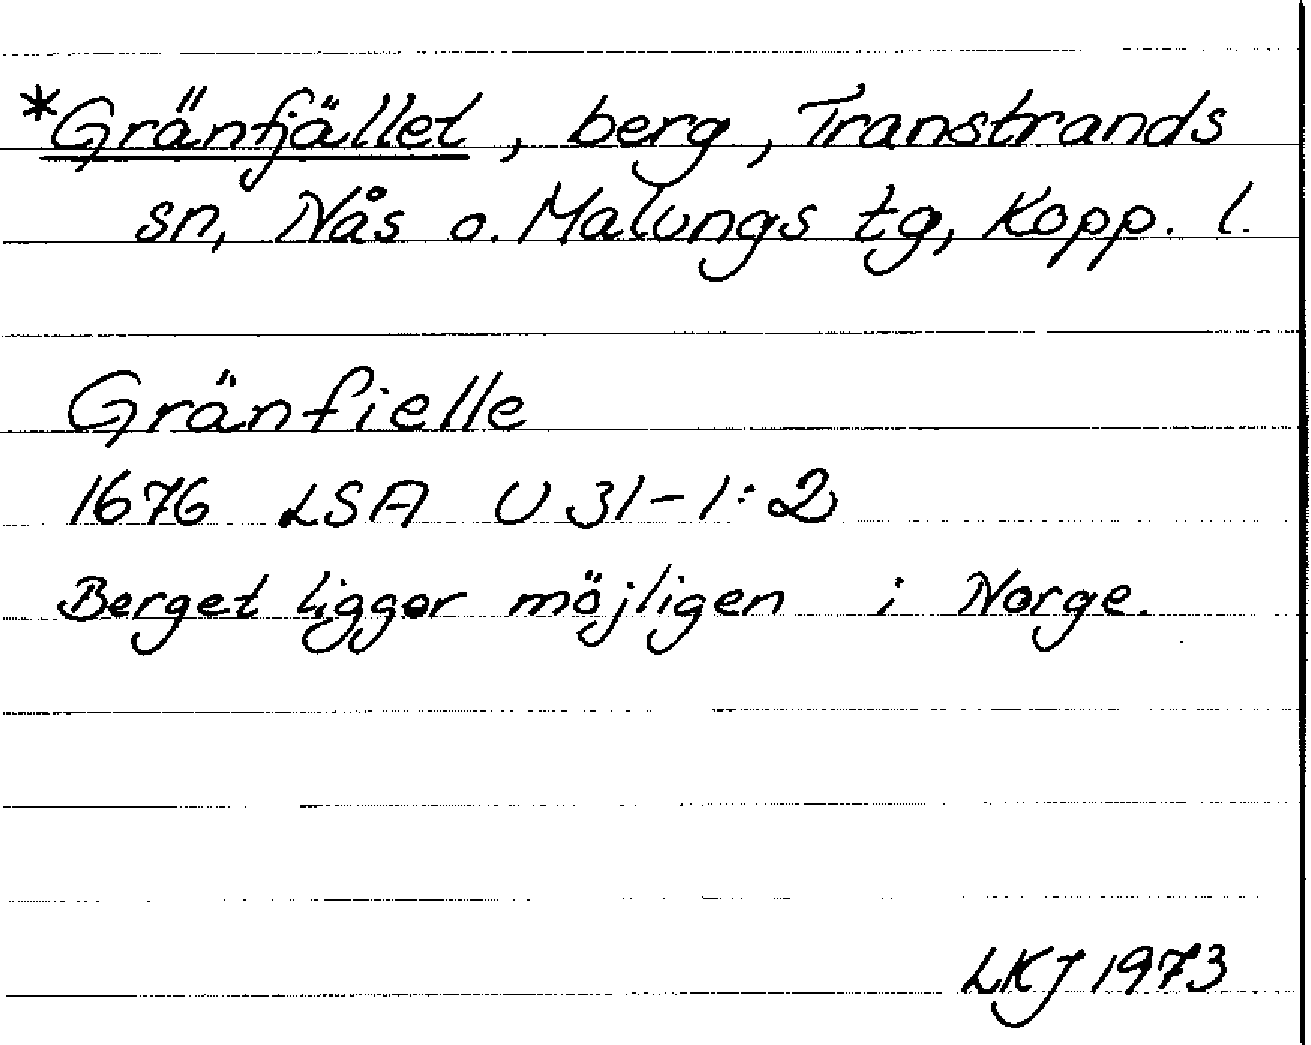 *Gränfjället, berg, Transtrands
sn, Nås o. Malungs tg, Kopp. l.
Gränfielle
1676 LSA U 31-1:2
Berget ligger möjligen i Norge.
LKJ 1973